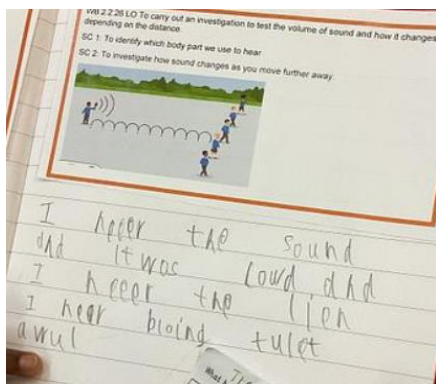 WB 2.2.26 LO To carry out an investigation to test the volume of sound and how it changes
depending on the distance.
SC 1: To identify which body part we use to hear
SC 2: To investigate how sound changes as you move further away.
I heeer the sound
and it was Lowd and
I heeer the lien
I hear bioing tulet
awul
What